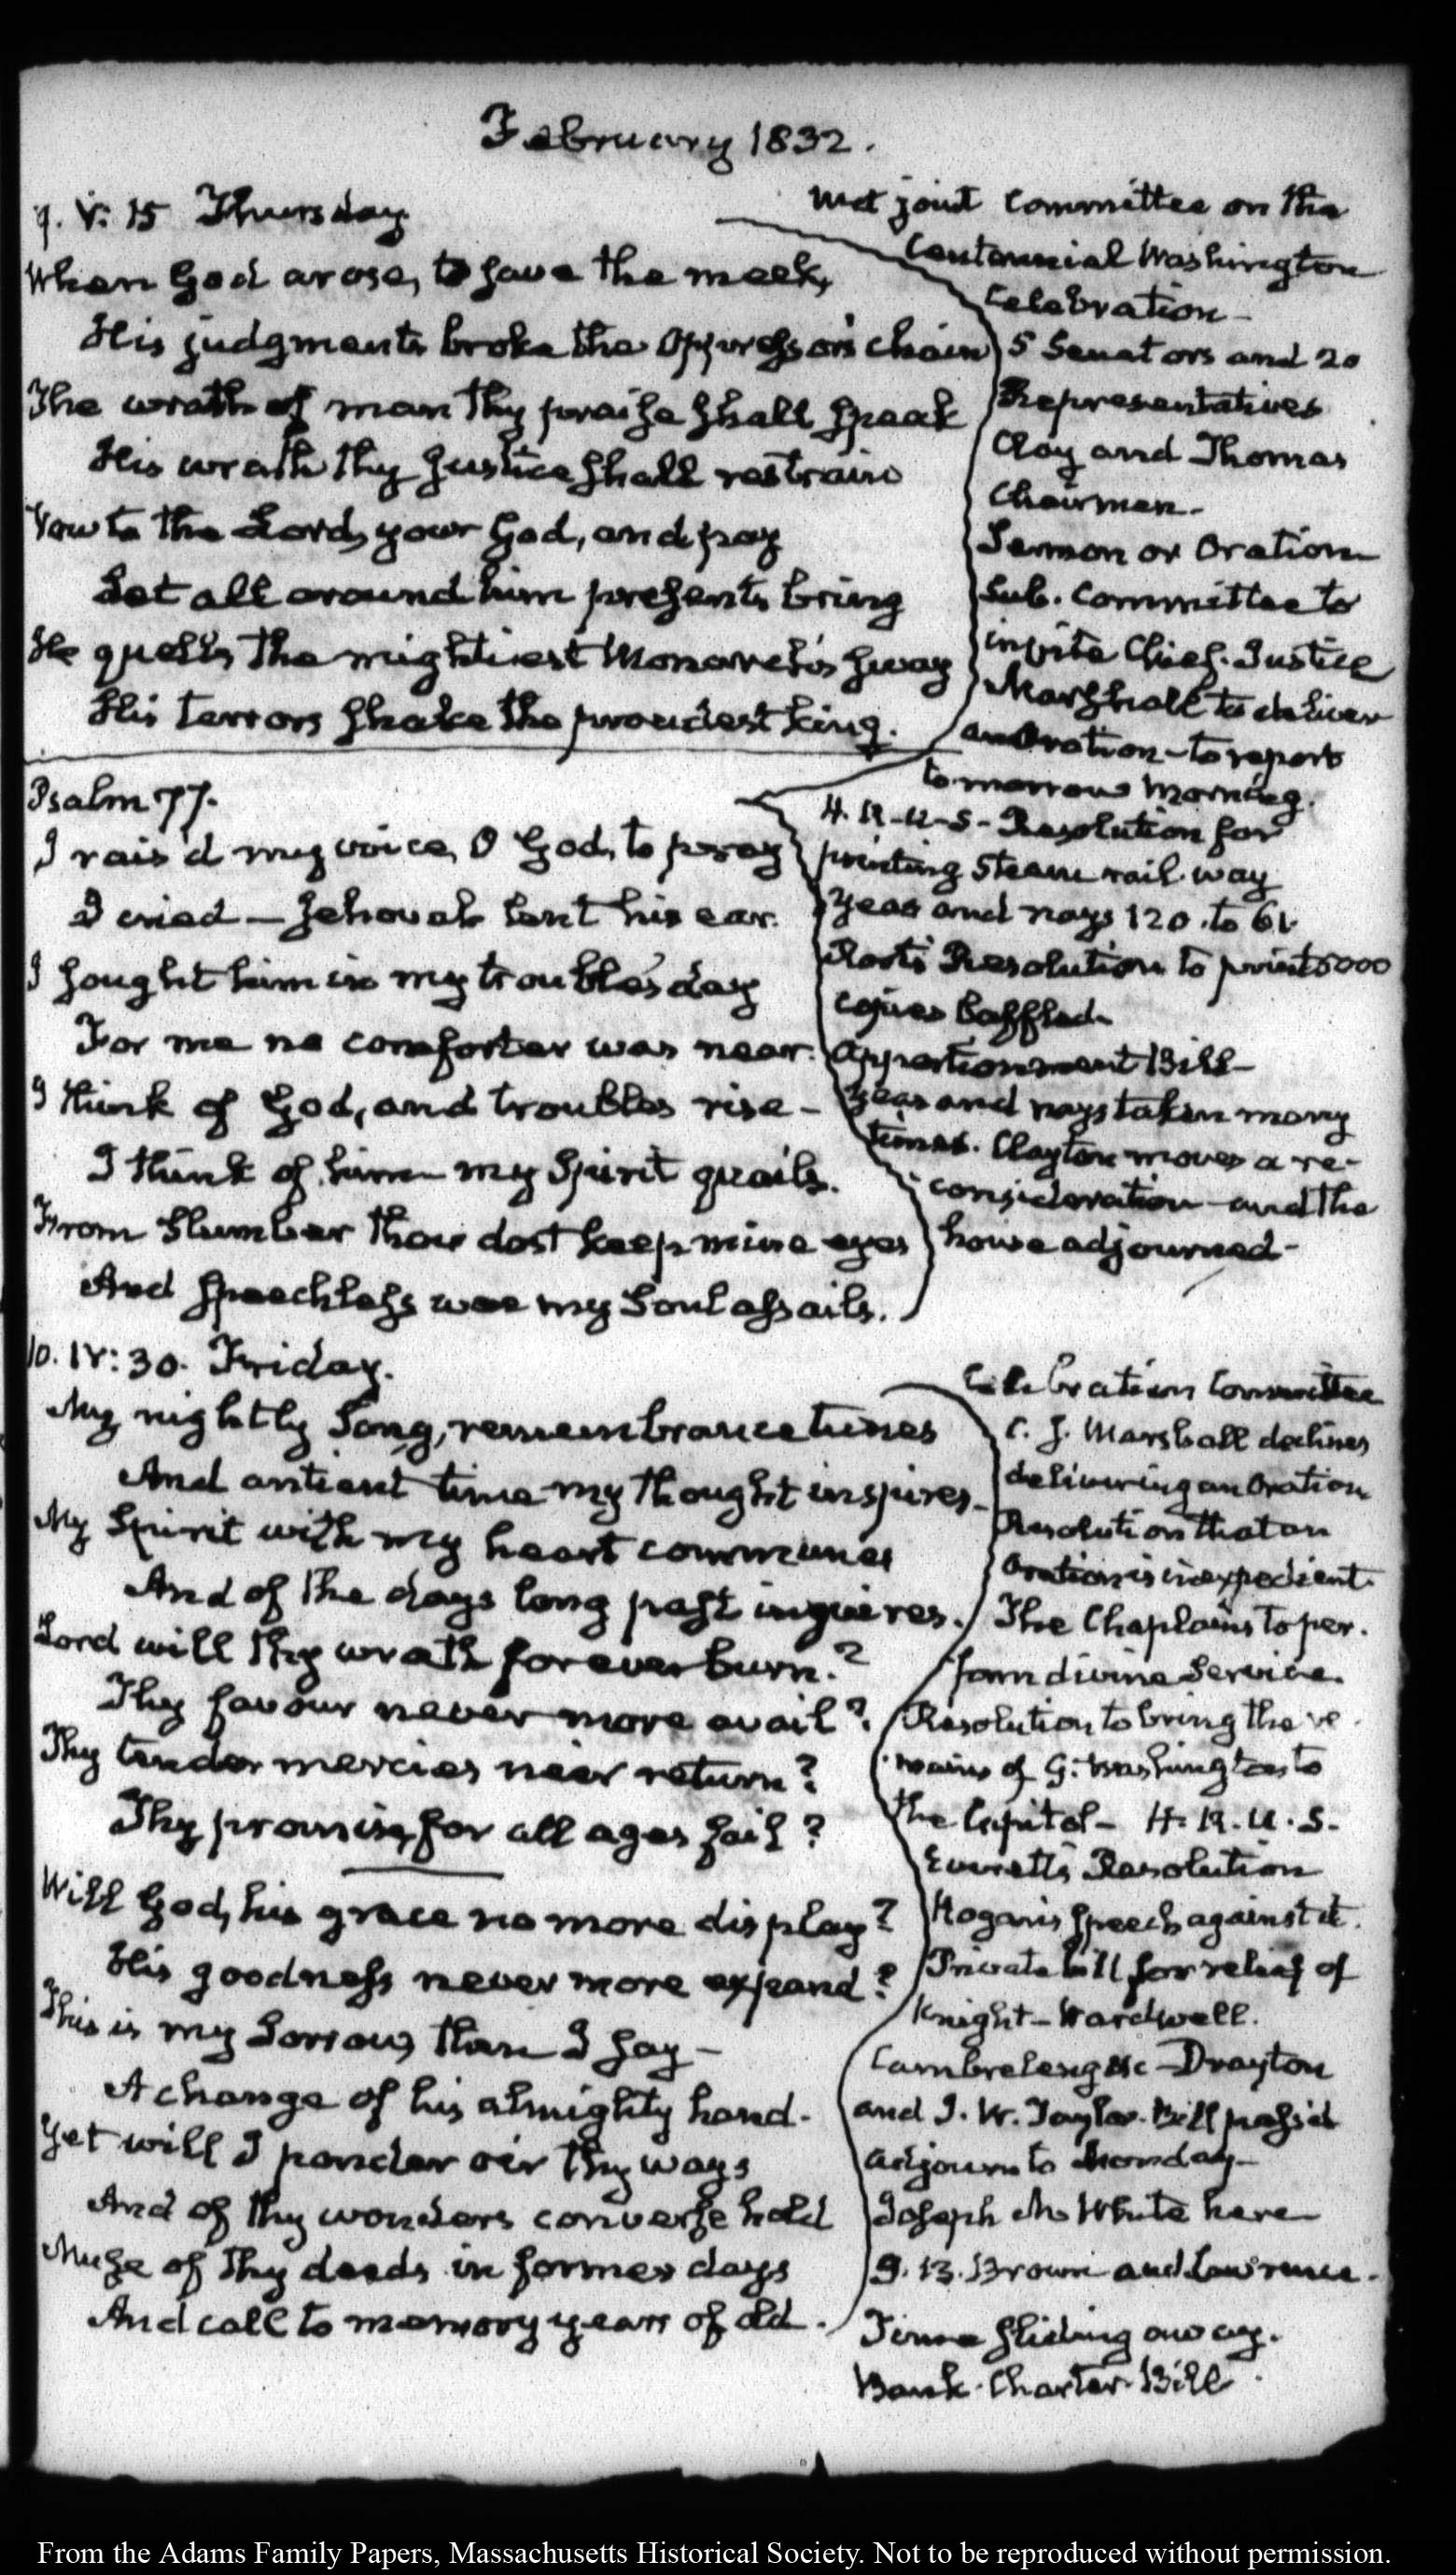 February 1832.
9. V: 15 Thursday
When God arose, to save the meek,
His judgments broke the Oppressor's chain
The wrath of man thy praise shall speak
His wrath thy justice shall restrain
Vow to the Lord, your God, and pay
Let all around him presents bring
He quells the mightiest Monarch's sway
His terrors shake the proudest king.
Met joint Committee on the
Centennial Washington
Celebration -
5 Senators and 20
Representatives
Clay and Thomas
Chairmen -
Sermon or Oration
Sub. Committee to
invite Chief Justice
Marshall to deliver
an Oration - to report
to-morrow Morning.
Psalm 77.
I rais'd my voice, O God, to pray
I cried — Jehovah lent his ear.
I sought him in my trouble's day
For me no comforter was near.
I think of God, and troubles rise -
I think of him - my Spirit quails.
From Slumber thou dost keep mine eyes
And speechless woe my Soul assails.
H. R. U. S - Resolution for
printing Steam rail way
Yeas and nays 120 to 61
Root's Resolution to print 5000
copies baffled -
Apportionment Bill -
Yeas and nays taken many
times. Clayton moves a re-
consideration - and the
house adjourned -
10. IV: 30. Friday.
My nightly Song, remembrance tunes
And antient time my thought inspires -
My Spirit with my heart communes
And of the days long past inquires.
Lord will thy wrath forever burn?
Thy favour never more avail?
Thy tender mercies ne'er return?
Thy promise, for all ages fail?
Will God, his grace no more display?
His goodness never more expand?
This is my Sorrow, then I say -
A change of his almighty hand.
Yet will I ponder o'er thy ways
And of thy wonders converse hold
Muse of thy deeds in former days
And call to memory years of old.
Celebration Committee
C. J. Marshall declines
delivering an Oration
Resolution that an
Oration is inexpedient.
The Chaplains to per-
form divine Service.
Resolution to bring the re-
mains of G. Washington to
the Capitol - H. R. U. S.
Everett's Resolution
Hogan's Speech against it.
Private bill for relief of
Knight - Wardwell.
Cambreleng &c - Drayton
and J. W. Taylor. Bill pass'd
adjourn to Monday -
Joseph M. White here
J. B. Brown and Lawrence.
Time sliding away.
Bank Charter Bill
From the Adams Family Papers, Massachusetts Historical Society. Not to be reproduced without permission.